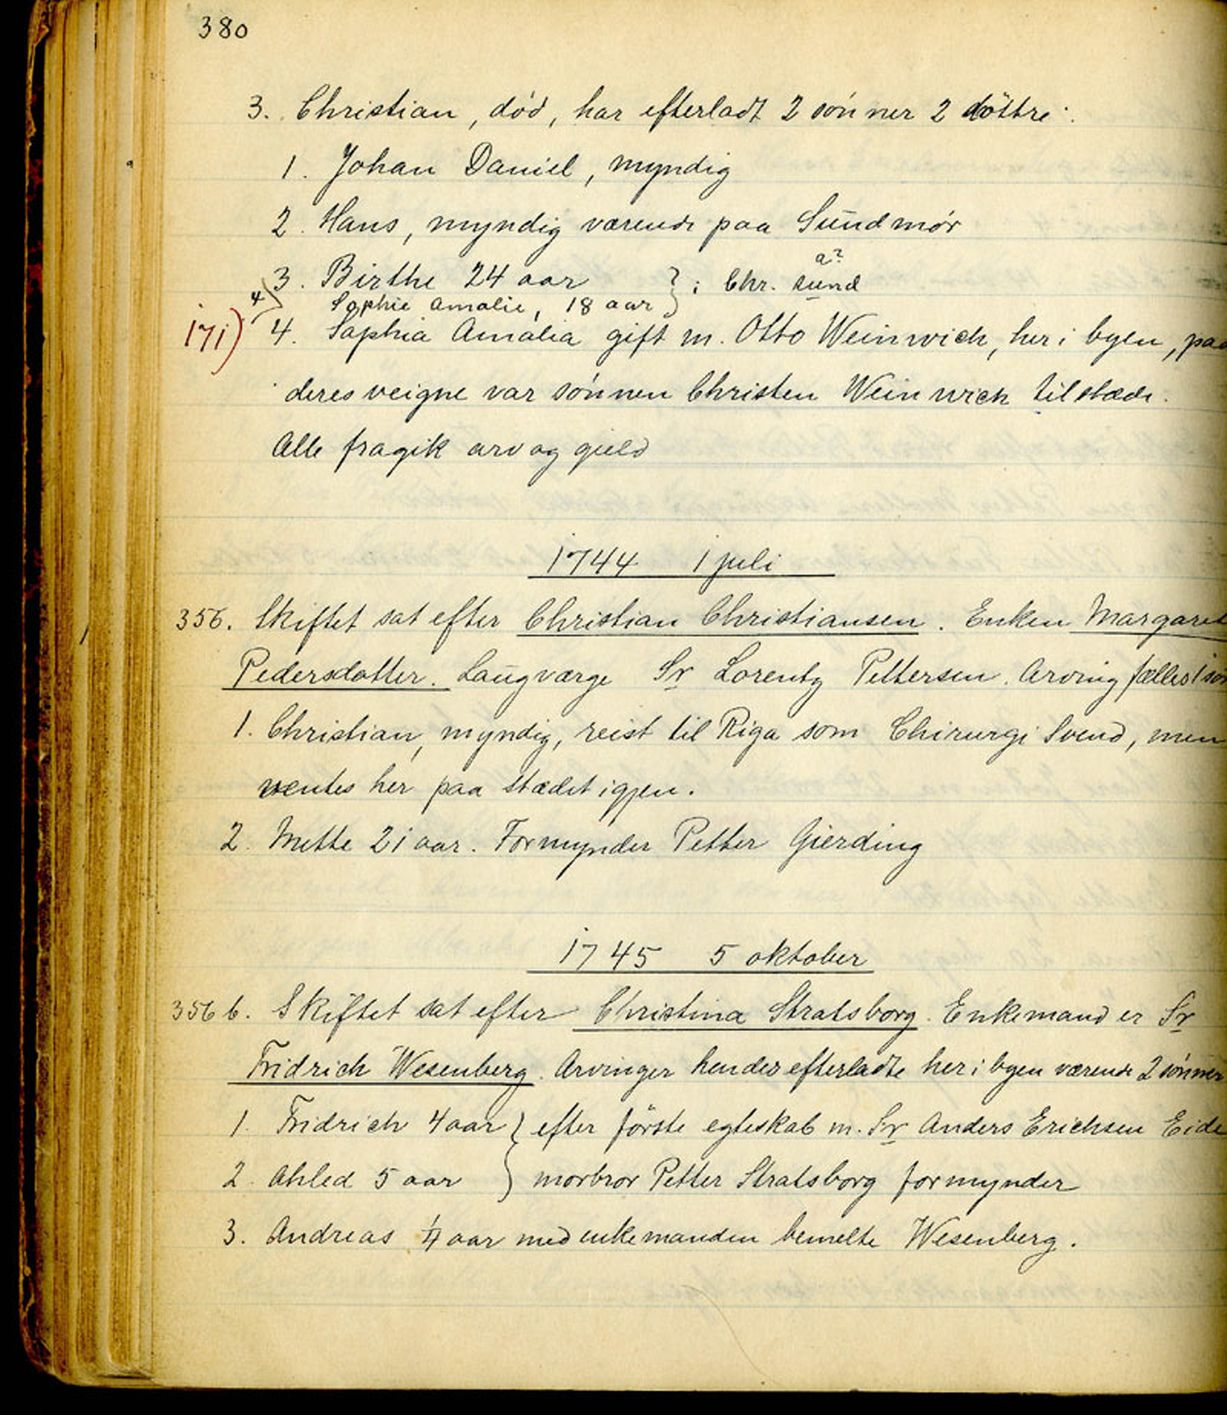 380
3. Christian, död, har efterladt 2 sónner 2 döttre.
1. Johan Daniel, myndig
2. Hans, myndig værende paa Sŭndmór
a?
3. Birthe 24 aar } i Chr. sund
4) Sophie Amalie, 18 aar
171) 4. Sophia Amalia gift m. Otto Weinwich, her i byen, paa
deres veigne var sónnen Christen Weinwich tilstæde.
Alle fragik arv og gield
1744 1 juli
356. Skiftet sat efter Christian Christiansen. Enken Margaret
Pedersdatter. Laŭgværge Sr Lorentz Pettersen. Arving fælles 1 són
1. Christian, myndig, reist til Riga som Chirurgi Svend, men
ventes her paa stædet igjen.
2. Mette 21 aar. Formynder Petter Gierding
1745 5 oktober
356 b. Skiftet sat efter Christina Stratsborg. Enkemand er Sr
Fridrich Wesenberg. Arvinger hendes efterladte her i byen værende 2 sónner
1. Fridrich 4 aar } efter förste egteskab m. Sr Anders Erichsen Eide
2. Ahled 5 aar } morbror Petter Stratsborg formynder
3. Andreas 1/4 aar med enkemanden bemelte Wesenberg.